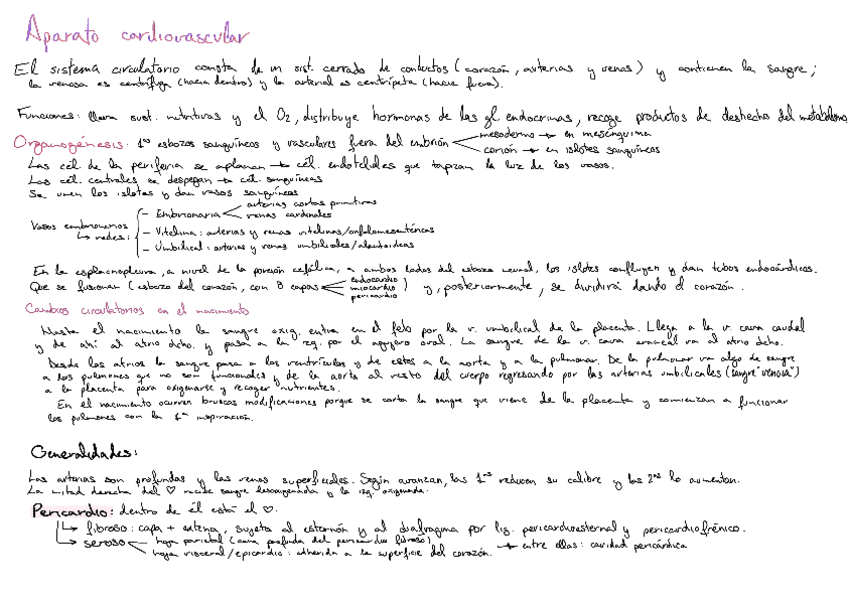 Aparato cardiovascular
El sistema circulatorio consta de un sist. cerrado de conductos (corazón, arterias y venas) y contienen la sangre;
la venosa es centrífuga (hacia dentro) y la arterial es centrípeta (hacia fuera).
Funciones: lleva sust. nutritivas y el O2, distribuye hormonas de las gl. endocrinas, recoge productos de deshecho del metabolismo
Organogénesis. 1os esbozos sanguíneos y vasculares fuera del embrión
mesodermo → en mesénquima
corion → en islotes sanguíneos
Las cél. de la periferia se aplanan → cél. endoteliales que tapizan la luz de los vasos.
Las cél. centrales se despegan → cél. sanguíneas
Se unen los islotes y dan vasos sanguíneos
Vasos embrionarios
↳ redes:
- Embrionaria
arterias aortas primitivas
venas cardinales
- Vitelina: arterias y venas vitelinas/onfalomesentéricas
- Umbilical: arterias y venas umbilicales/alantoideas
En la esplacnopleura, a nivel de la porción cefálica, a ambos lados del esbozo neural, los islotes confluyen y dan tubos endocárdicos.
Que se fusionan (esbozo del corazón, con 3 capas
endocardio
miocardio
pericardio
) y, posteriormente, se dividirá dando el corazón.
Cambios circulatorios en el nacimiento
Hasta el nacimiento la sangre oxig. entra en el feto por la v. umbilical de la placenta. Llega a la v. cava caudal
y de ahí al atrio dcho. y pasa a la izq. por el agujero oval. La sangre de la v. cava craneal va al atrio dcho.
Desde los atrios la sangre pasa a los ventrículos y de estos a la aorta y a la pulmonar. De la pulmonar va algo de sangre
a los pulmones que no son funcionales y de la aorta al resto del cuerpo regresando por las arterias umbilicales (sangre "venosa")
a la placenta para oxigenarse y recoger nutrientes.
En el nacimiento ocurren bruscas modificaciones porque se corta la sangre que viene de la placenta y comienzan a funcionar
los pulmones con la 1a inspiración.
Generalidades:
Las arterias son profundas y las venas superficiales. Según avanzan, las 1as reducen su calibre y las 2as lo aumentan.
La mitad derecha del ♡ recibe sangre desoxigenada y la izq. oxigenada.
Pericardio: dentro de él está el ♡.
↳ fibroso: capa + externa, sujeta al esternón y al diafragma por lig. pericardioesternal y pericardiofrénico.
↳ seroso
hoja parietal (cara profunda del pericardio fibroso)
hoja visceral/epicardio: adherida a la superficie del corazón.
→ entre ellas: cavidad pericárdica